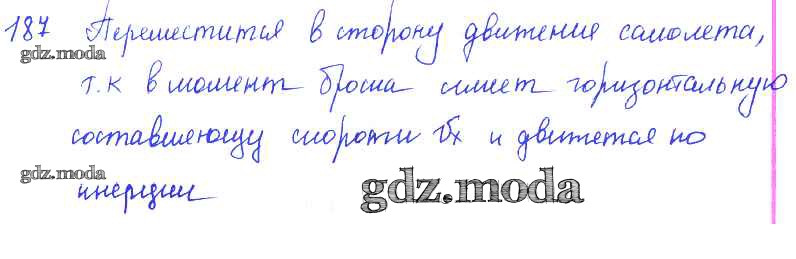 187 Переместится в сторону движения самолета,
gdz.moda
т.к в момент броска имеет горизонтальную
составляющую скорости Vx и движется по
gdz.moda
инерции
gdz.moda